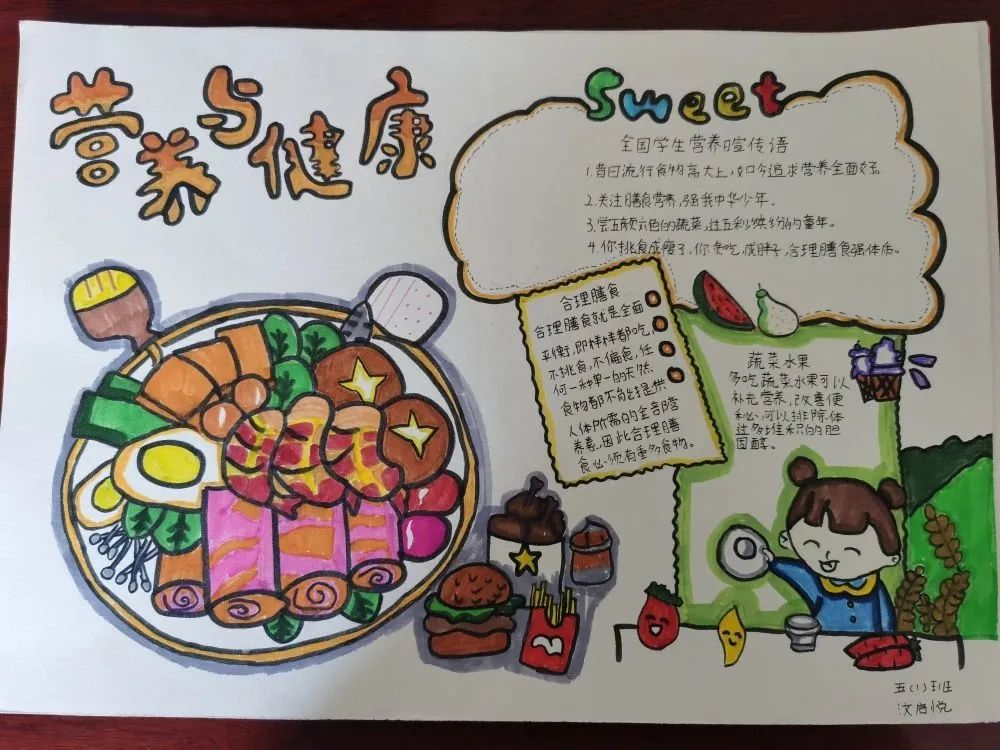 营养与健康
Sweet
全国学生营养宣传语
1.昔日流行食物高大上,如今追求营养全面好。
2.关注膳食营养,强我中华少年。
3.尝五颜六色的蔬菜,过五彩缤纷的童年。
4.你挑食成瘦子,你贪吃,成胖子,合理膳食强体质。
合理膳食
合理膳食就是全面
平衡,即样样都吃,
不挑食,不偏食,任
何一种单一的天然
食物都不能提供
人体所需的全部
养素,因此合理膳
食必须有多食物。
蔬菜水果
多吃蔬菜水果可以
补充营养,改善便
秘,可以排除体
过多堆积的胆
固醇。
五(1)班
汝启悦